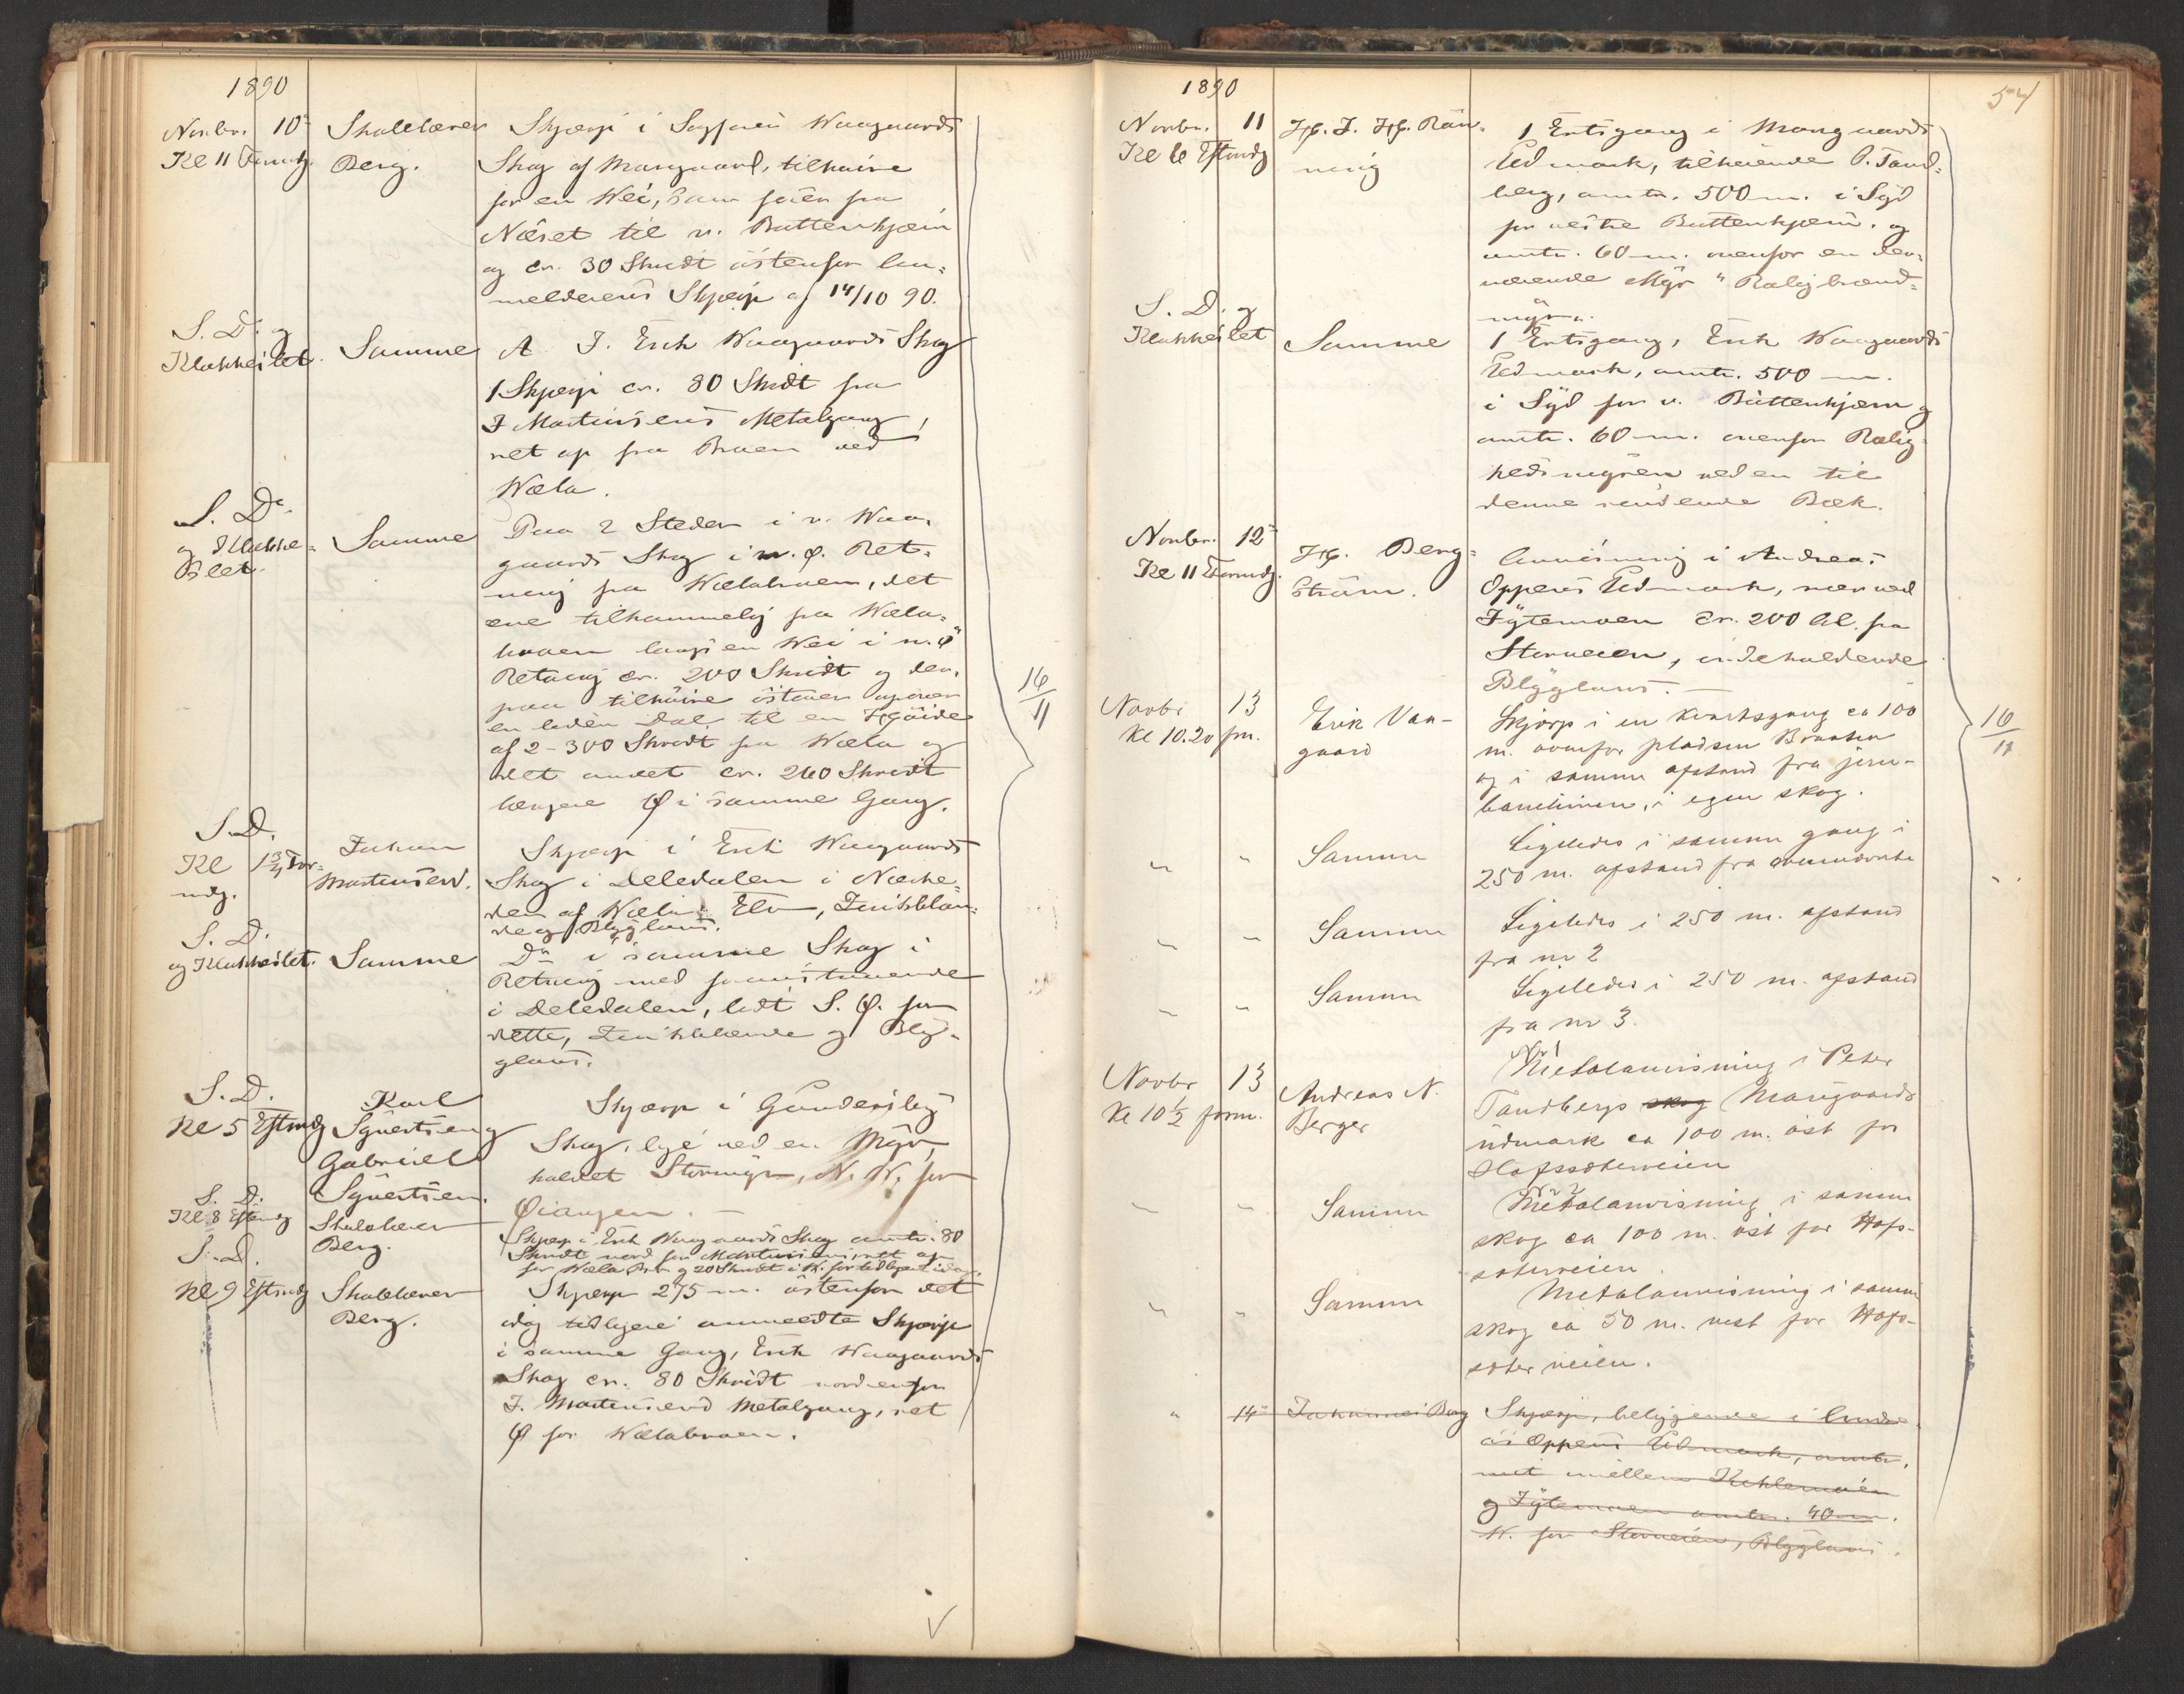 1890
Novbr. 10de Skolelærer Skjærp i Sogfoeri Waagaards
Kl 11 Formdg. Berg. Skog af Morgaard, tilhøire
for en Wei, som fører fra
Næset til v. Buttenkjærn
og cr. 30 Skridt østenfor An-
melderens Skjærp af 14/10 90.
S. D. og
Klokkeslet. Samme A I. Erik Waagaards Skog
1 Skjærp cr. 80 Skridt fra
J Martinsens Metalgang,
ret op fra Broen ved
Wæla.
S. D.
og Klokke-
slet. Samme Paa 2 Steder i v. Waa-
gaards Skog i n. Ø. Ret-
ning fra Wælabroen, det
ene tilkommelig fra Wæla-
broen langs en Wei i n. Ø
Retning cr. 200 Skridt og der-
paa tilhøire østover opover
en liden Dal til en Høide
af 2-300 Skridt fra Wæla og
det andet cr. 260 Skridt
længere Ø i samme Gang.
S. D.
Kl 1 3/4 For-
mdg. Johan
Martinsen. Skjærp i Erik Waagaards
Skog i Deledalen i Nærhe-
den af Wælas Elv, Zinkblen-
de og Blyglans.
S. D.
og Klokkeslet. Samme Do i samme Skog i
Retning med foranstaaende
i Deledalen, lidt S. Ø. for
dette, Zinkblende og Bly-
glans.
S. D.
Kl 5 Eftmdg Karl
Syvertsen og
Gabriel
Syvertsen. Skjærp i Gundersby
Skog, lige ved en Myr,
kaldet Stormyr, N. W. for
Øiangen.
S. D.
Kl 8 Eftmdg Skolelærer
Berg. Skjærp i Erik Waagaards Skog omtr. 80
Skridt nord for Martinsens, ret op
for Wæla Bro og 20 Skridt i W. for tidligere idag.
S. D.
Kl 9 Eftmdg Skolelærer
Berg. Skjærp 275 m. østenfor det
idag tidligere anmeldte Skjærp
i samme Gang, Erik Waagaards
Skog cr. 80 Skridt nordenfor
J. Martinsens Metalgang, ret
Ø for Wælabroen.
16/11
1890
54
Novbr. 11
Kl 6 Eftmdg H. J. H. Røn-
ning 1 Ertsgang i Morgaards
Udmark, tilhørende P. Tand-
berg, omtr. 500 m. i Syd
for vestre Buttenkjærn. og
omtr. 60 m. ovenfor en der-
værende Myr "Rolig brænd-
myr".
S. D. og
Klokkeslet Samme 1 Ertsgang, Erik Waagaards
Udmark, omtr. 500 m.
i Syd for v. Buttenkjærn og
omtr. 60 m. ovenfor Rolig-
hedsmyren ved en til
denne rindende Bæk.
Novbr. 12te
Kl 11 Formdg. H. Berg-
strøm. Anvisning i Andreas
Oppens Udmark, nær ved
Tytemoen cr. 200 Al. fra
Storveien, indeholdende
Blyglans.
Novbr 13
Kl 10.20 fm. Erik Vaa-
gaard Skjærp i en kvartsgang ca 100
m. ovenfor pladsen Braaten
og i samme afstand fra jern-
banelinien, i egen skog.
" " Samme Ligeledes i samme gang i
250 m. afstand fra ovennævnte
" " Samme Ligeledes i 250 m. afstand
fra nr 2
" " Samme Ligeledes i 250 m. afstand
fra nr 3.
Novbr 13
Kl 10 1/2 form. Andreas N.
Berger Nr 1
Metalanvisning i Peter
Tandbergs skog Morgaards
udmark ca 100 m. øst for
Hofssæterveien
" " Samme Nr 2
Metalanvisning i samme
skog ca 100 m. øst for Hofs-
sæterveien
" " Samme Metalanvisning i samme
skog ca 50 m. vest for Hofs-
sæterveien.
" 14de Johannes Berg Skjærp, beliggende i Andre-
as Oppens Udmark, omtr.
midt imellem
og Tytemoen omtr. 40 m.
W. for Storveien, Blyglans.
16/11